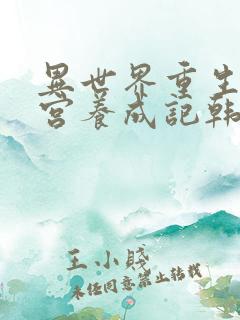 異世界重生
宮養成記韓
王小賤
未經同意禁止轉載